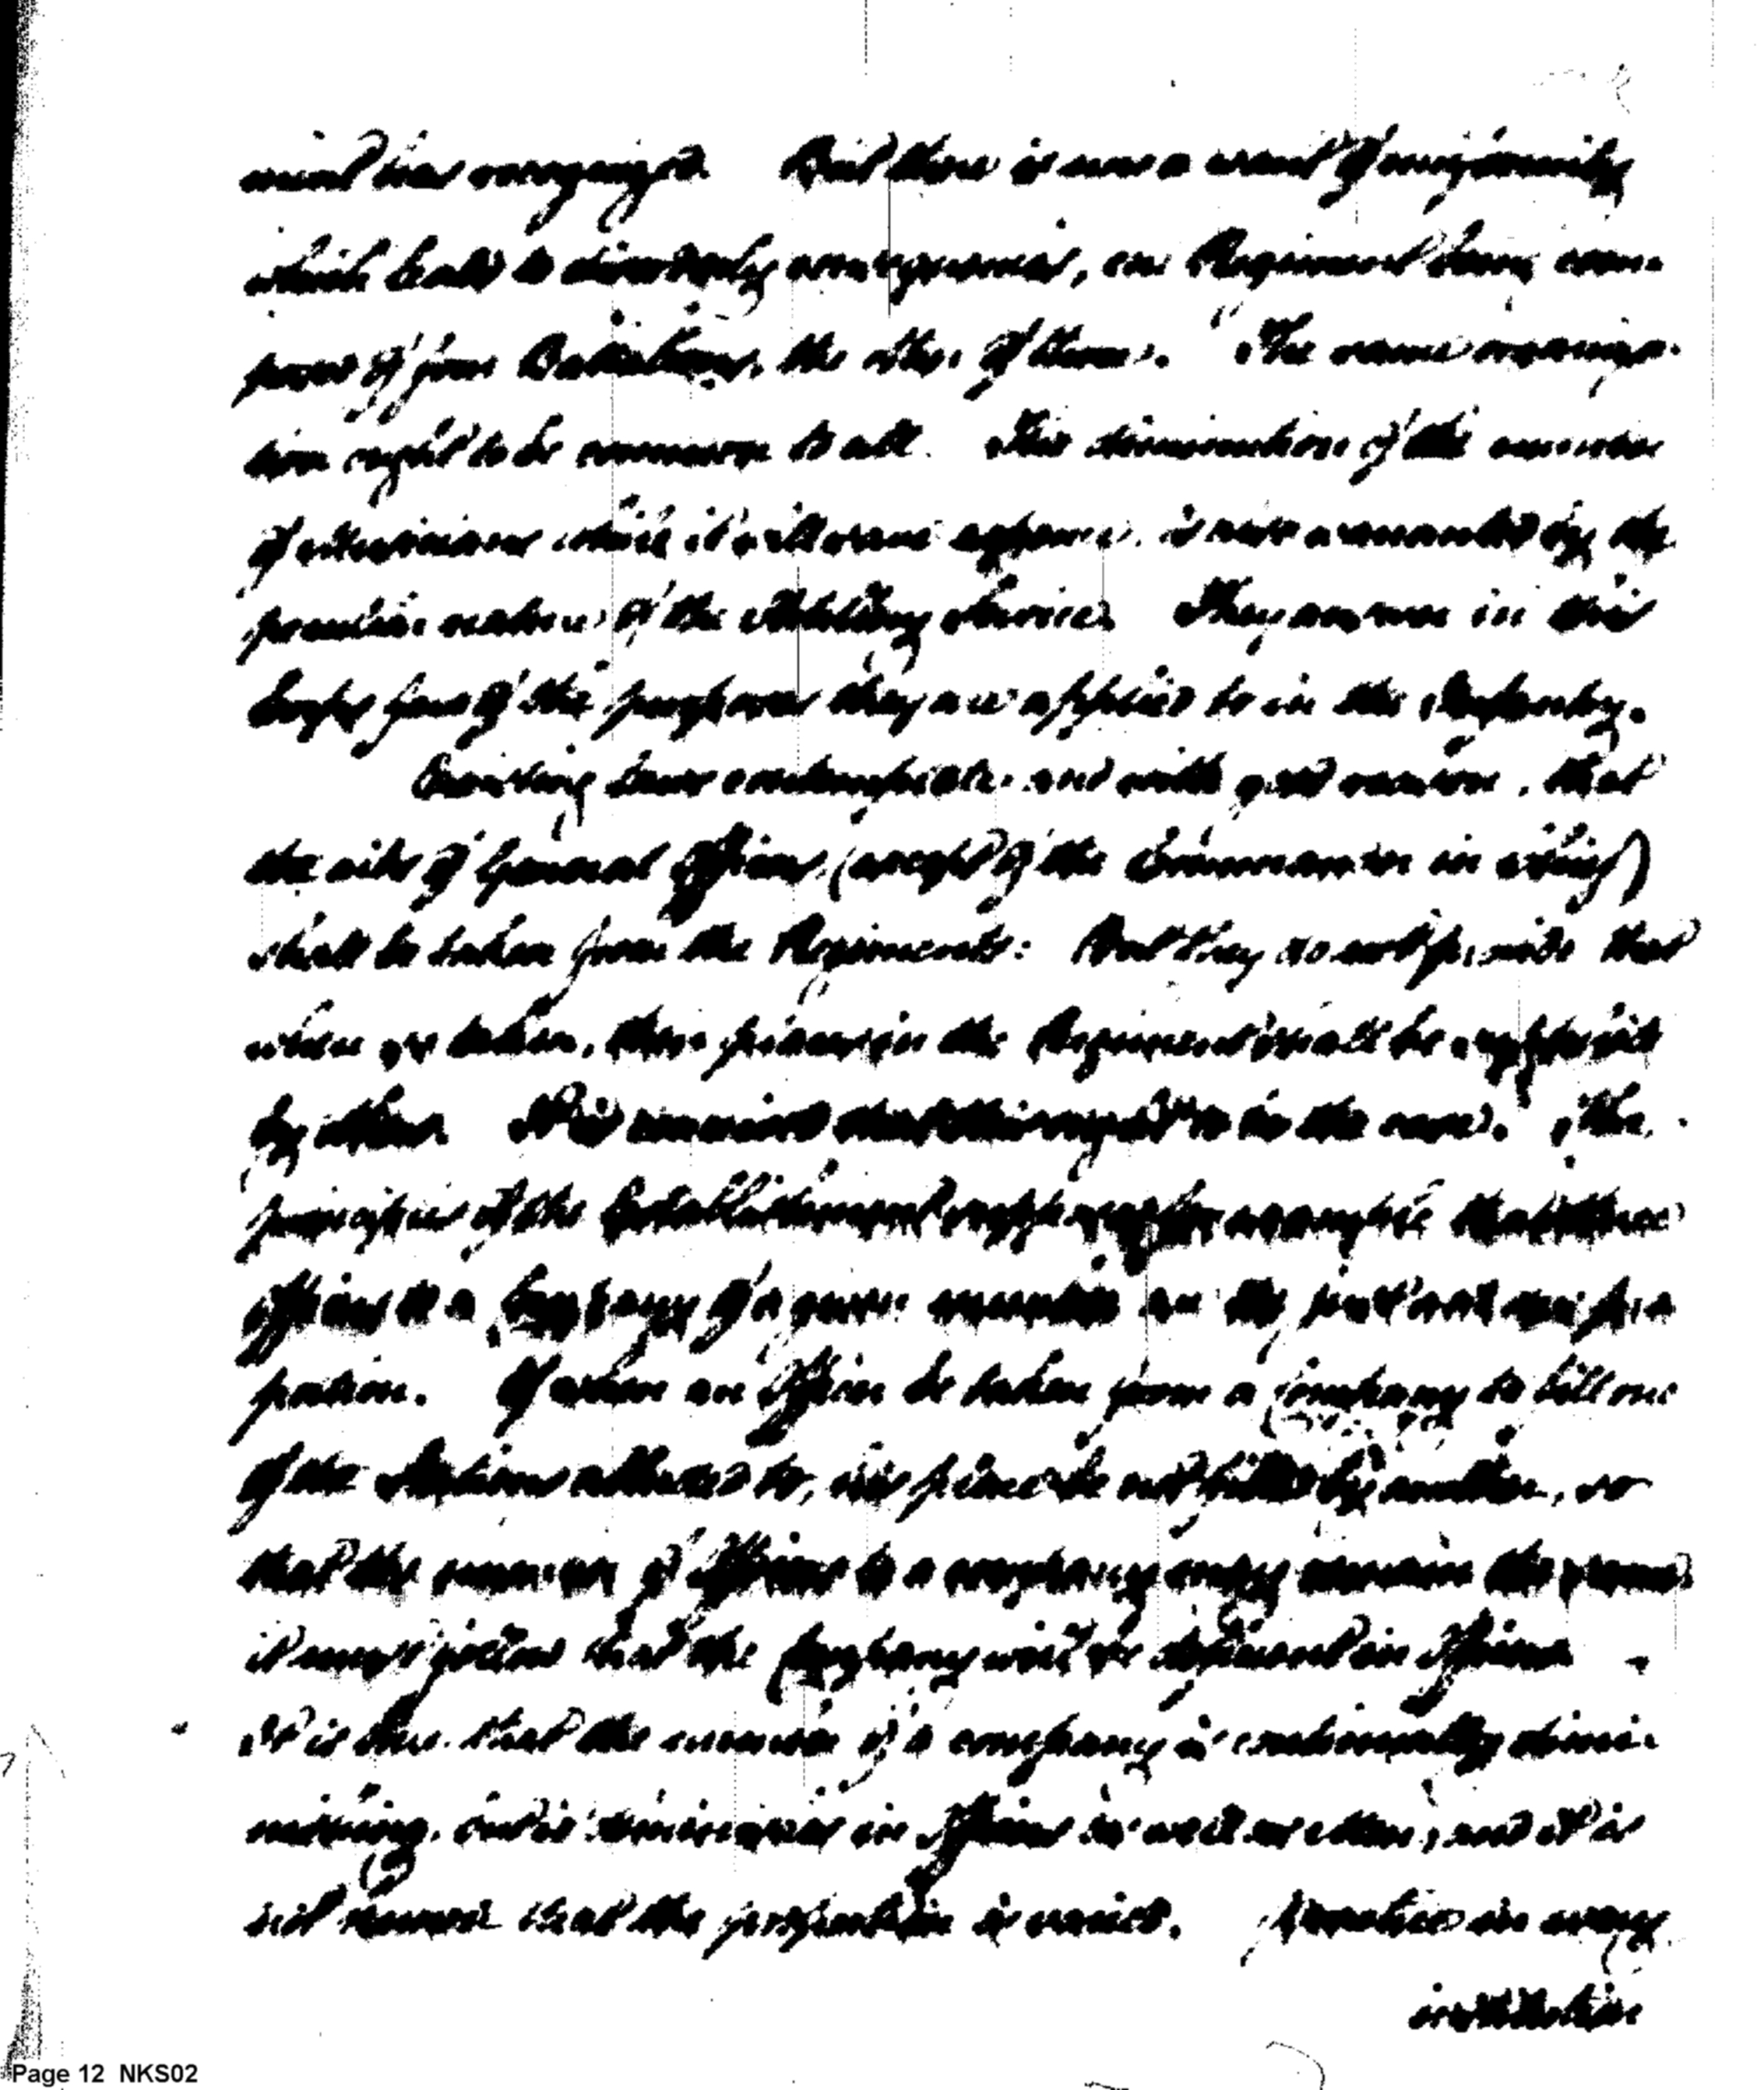 But there is now a want of uniformity
which leads to disorderly consequences, one Regiment being com-
posed of four Battalions, the others of three. The same organiza-
tion ought to be common to all. The diminution of the number
of which it will appear, is by the
peculiar nature of the Artillery Service. They answer in this
Corps few of the purposes they are applied to in the Infantry.
Existing laws contemplate and with good reason, that
the aids of General Officers (except of the Commander in Chief)
shall be taken from the Regiments: But they do not provide that
when so taken, their places in the Regiment shall be supplied
by others. It is conceived that this ought to be the case. The
principles of the Establishment suppose for example that three
officers to a Company of a given number are the just and due pro-
portion. If when an Officer be taken from a Company to fill one
of the Stations alluded to, his place be not filled by another, so
that the number of Officers to a company may remain the same
it must follow that the Company will be deficient in Officers
It is true that the number of a company is continually dimi-
nishing, but it diminishes in Officers as well as Men; and it is
not known that the proportion is varied. Practice in every
institution